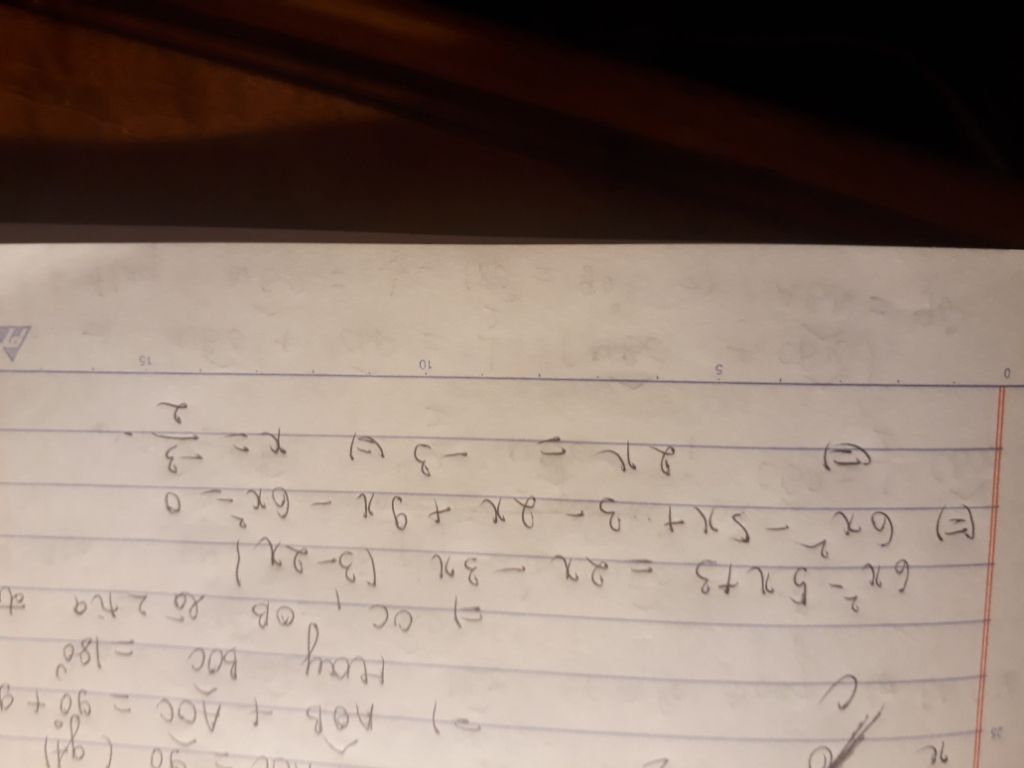 x
AOC = 90 (gt)
=) AOB + AOC = 90° + 9
C
Hay BOC = 180°
=) OC, OB là 2 tia
6x² - 5x + 3 = 2x - 3x (3 - 2x)
(=) 6x² - 5x + 3 - 2x + 9x - 6x² = 0
(=) 2x = -3 (=) x = -3/2.
0 5 10 15
25